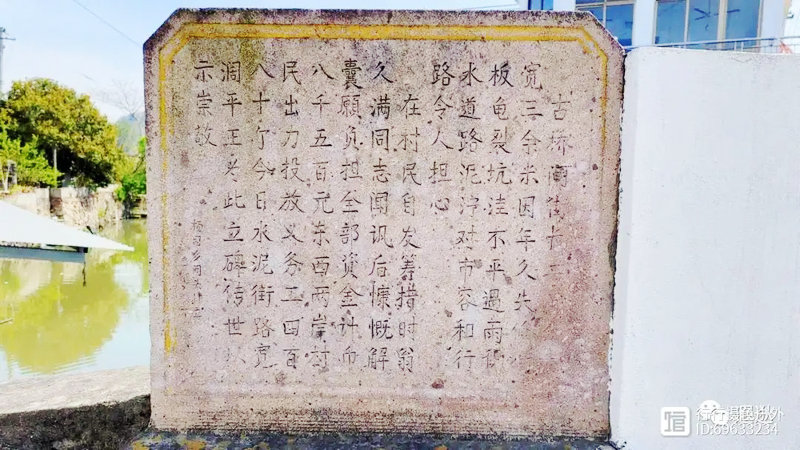 古桥河街长
宽三余米因年久失
板龟裂坑洼不平遇雨积
水道路泥泞对市容和行
路令人担心
在村民自发筹措时翁
久满同志闻讯后慷慨解
囊愿负担全部资金计币
八千五百元东西两岸村
民出力投放义务工四百
八十个今日水泥街路宽
阔平正为此立碑传世以
示崇敬
行行摄摄
ID:69633234